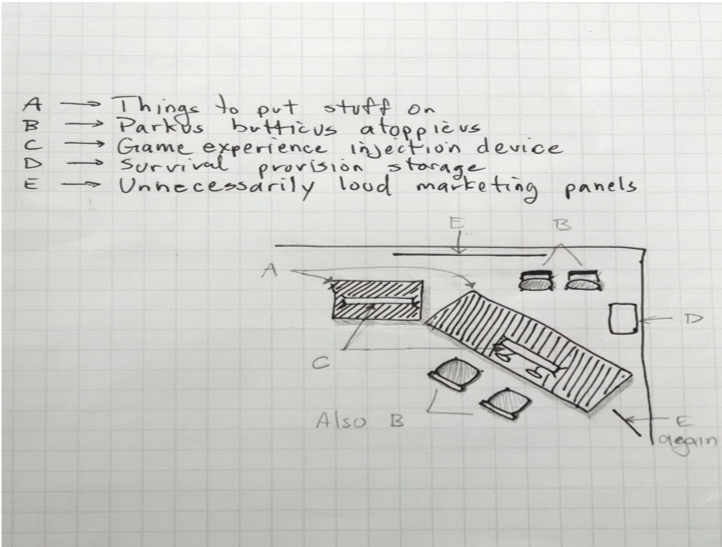 A → Things to put stuff on
B → Parkus butticus atoppicus
C → Game experience injection device
D → Survival provision storage
E → Unnecessarily loud marketing panels
E
B
A
D
C
Also B
E
again